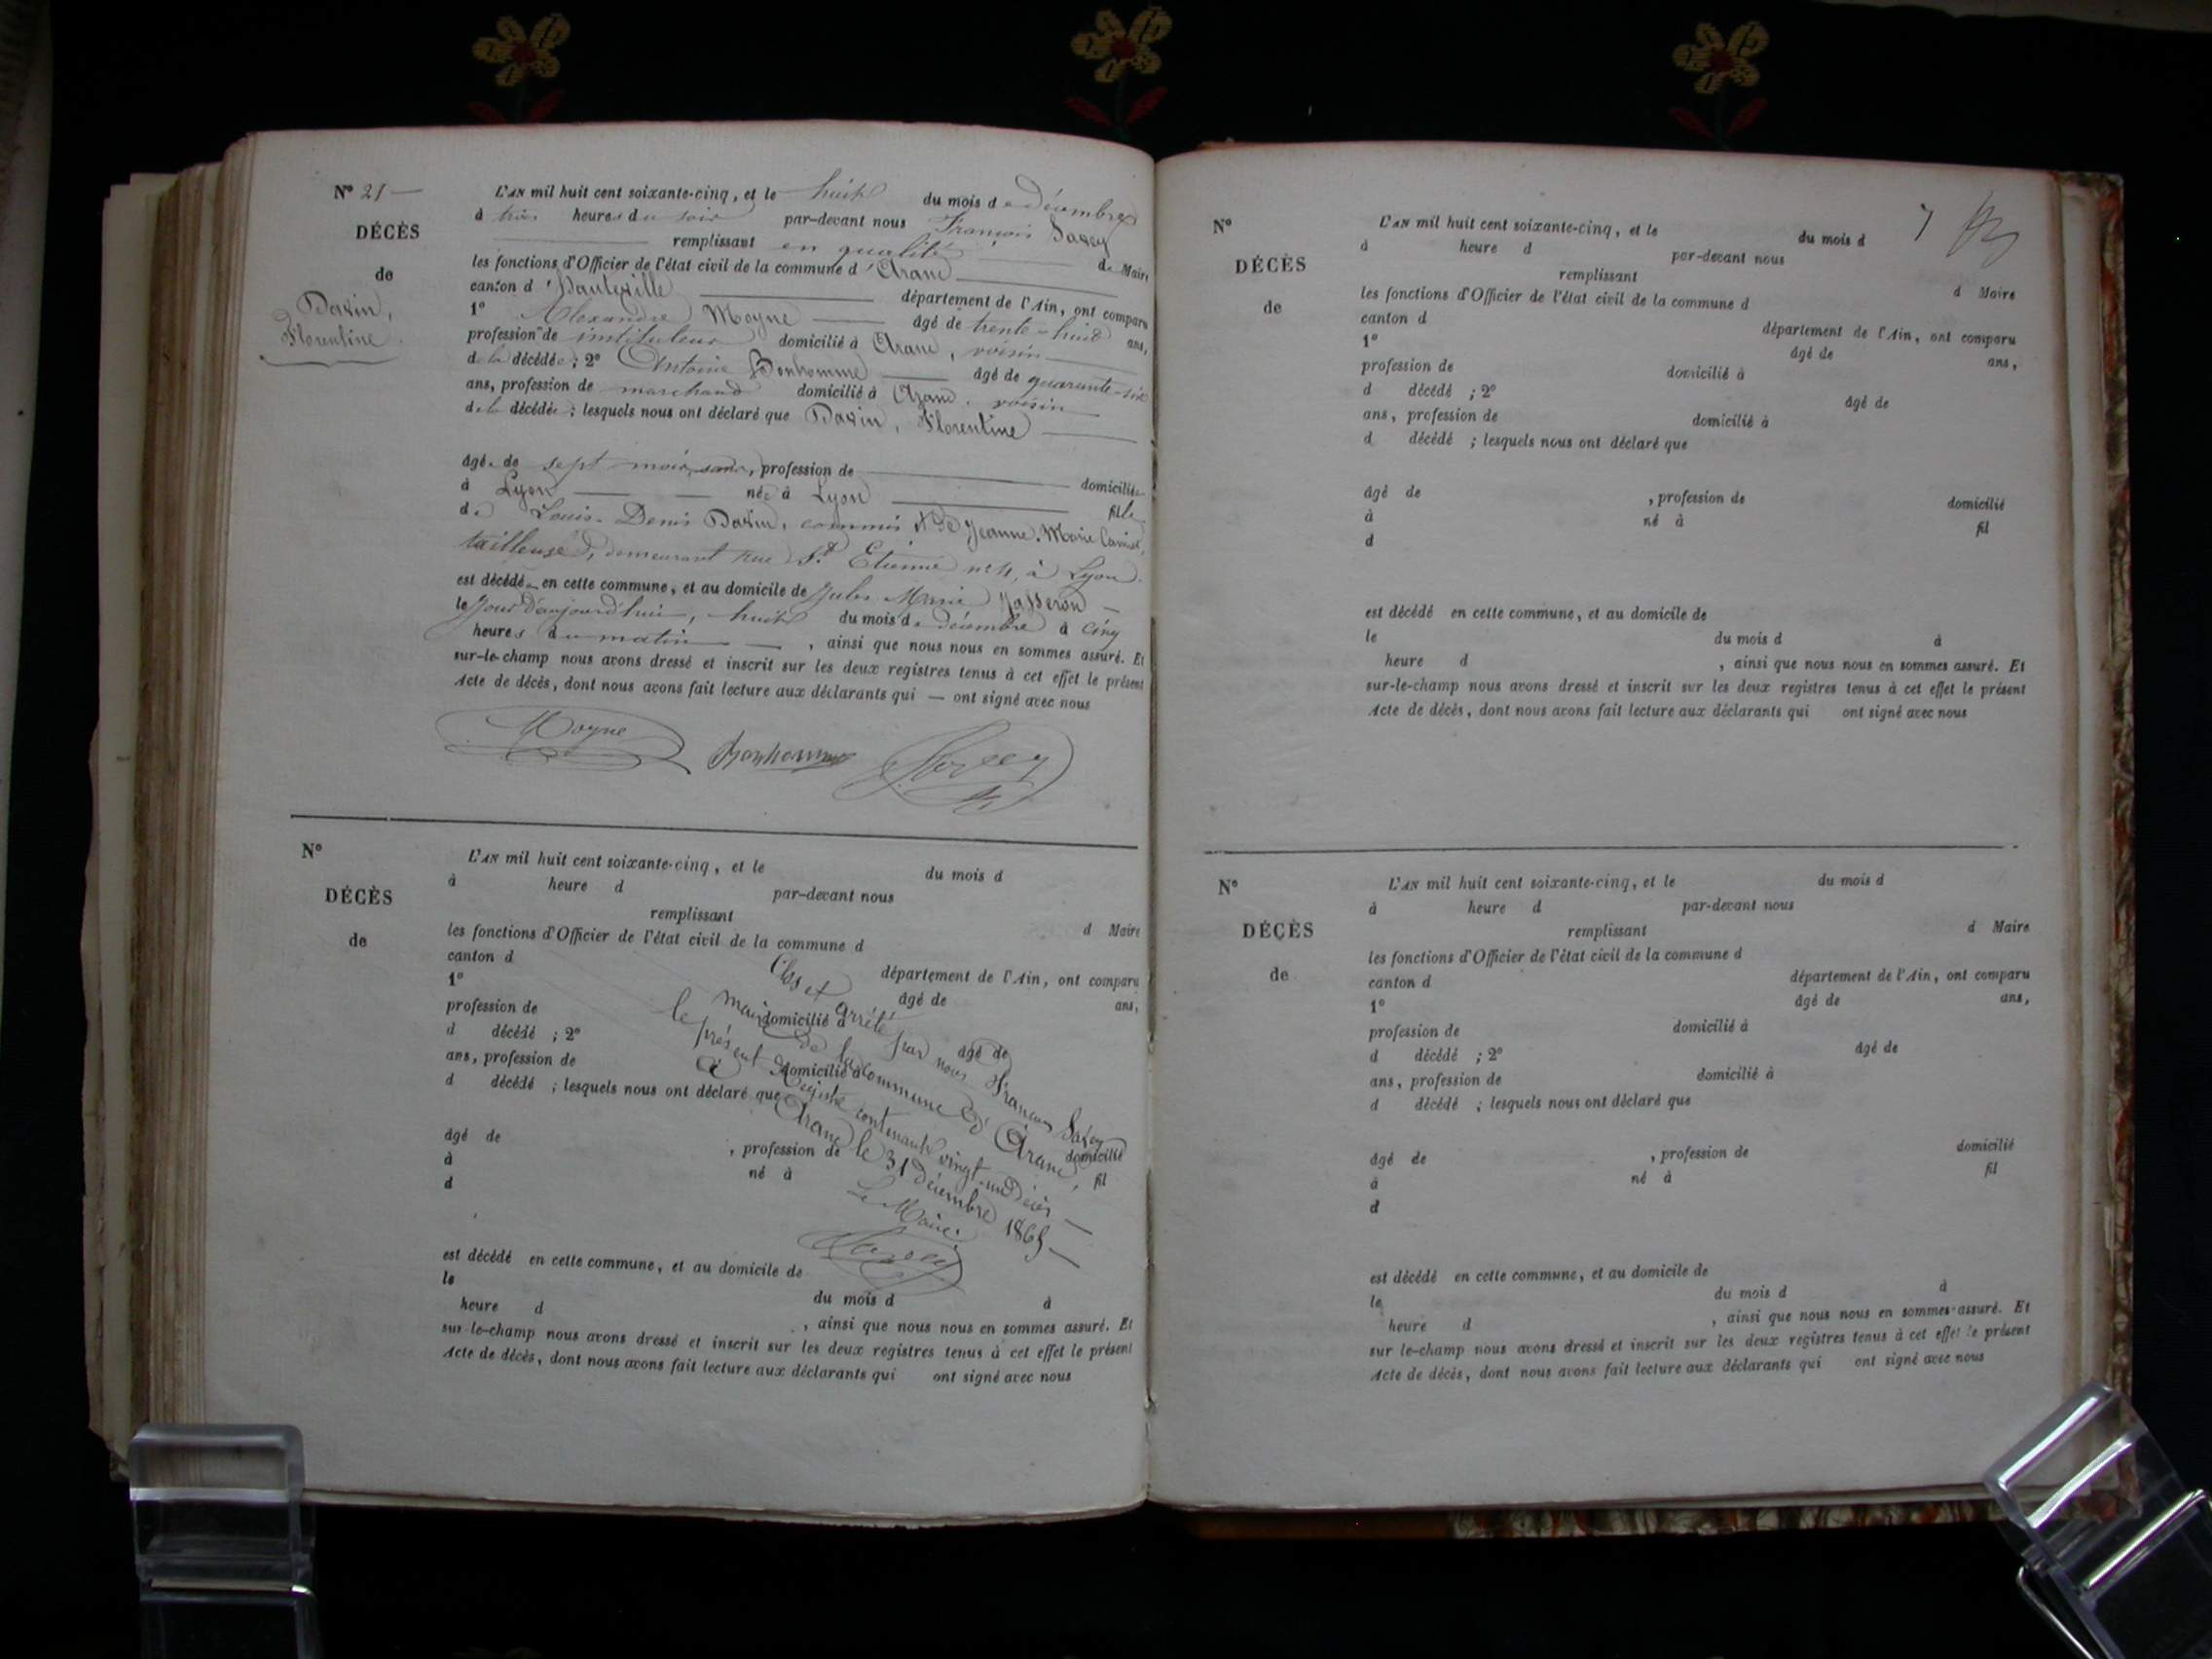 N° 21 —
DÉCÈS
de
Davin,
Florentine
L'AN mil huit cent soixante-cinq, et le huit du mois de décembre
à trois heures du soir par-devant nous François Savey
remplissant en qualité de Maire
les fonctions d'Officier de l'état civil de la commune d'Aranc
canton d'Hauteville département de l'Ain, ont comparu
1° Alexandre Moyne âgé de trente-huit ans,
profession de instituteur domicilié à Aranc, voisin
de la décédée ; 2° Antoine Bonhomme âgé de quarante-six
ans, profession de marchand domicilié à Aranc, voisin
de la décédée ; lesquels nous ont déclaré que Davin, Florentine
âgée de sept mois, profession de domiciliée
à Lyon née à Lyon fille
de Louis-Denis Davin, commis, & de Jeanne-Marie
tailleuse, demeurant rue St Etienne n° 4, à Lyon.
est décédée en cette commune, et au domicile de Jules Marie Jasseron
le jour d'aujourd'hui, huit du mois de décembre à cinq
heures du matin, ainsi que nous nous en sommes assuré. Et
sur-le-champ nous avons dressé et inscrit sur les deux registres tenus à cet effet le présent
Acte de décès, dont nous avons fait lecture aux déclarants qui — ont signé avec nous
Moyne Bonhomme Savey
N°
DÉCÈS
de
L'AN mil huit cent soixante-cinq, et le du mois d
à heure d par-devant nous
remplissant d Maire
les fonctions d'Officier de l'état civil de la commune d
canton d département de l'Ain, ont comparu
1° âgé de ans,
profession de domicilié à
d décédé ; 2° âgé de
ans, profession de domicilié à
d décédé ; lesquels nous ont déclaré que
âgé de , profession de domicilié
à né à fil
d
Clos et arrêté par nous François Savey
maire de la commune d'Aranc,
le présent Registre contenant vingt-un Décès —
à Aranc le 31 décembre 1865 —
Le Maire
Savey
est décédé en cette commune, et au domicile de
le du mois d à
heure d , ainsi que nous nous en sommes assuré. Et
sur-le-champ nous avons dressé et inscrit sur les deux registres tenus à cet effet le présent
Acte de décès, dont nous avons fait lecture aux déclarants qui ont signé avec nous
7
N°
DÉCÈS
de
L'AN mil huit cent soixante-cinq, et le du mois d
à heure d par-devant nous
remplissant d Maire
les fonctions d'Officier de l'état civil de la commune d
canton d département de l'Ain, ont comparu
1° âgé de ans,
profession de domicilié à
d décédé ; 2° âgé de
ans, profession de domicilié à
d décédé ; lesquels nous ont déclaré que
âgé de , profession de domicilié
à né à fil
d
est décédé en cette commune, et au domicile de
le du mois d à
heure d , ainsi que nous nous en sommes assuré. Et
sur-le-champ nous avons dressé et inscrit sur les deux registres tenus à cet effet le présent
Acte de décès, dont nous avons fait lecture aux déclarants qui ont signé avec nous
N°
DÉCÈS
de
L'AN mil huit cent soixante-cinq, et le du mois d
à heure d par-devant nous
remplissant d Maire
les fonctions d'Officier de l'état civil de la commune d
canton d département de l'Ain, ont comparu
1° âgé de ans,
profession de domicilié à
d décédé ; 2° âgé de
ans, profession de domicilié à
d décédé ; lesquels nous ont déclaré que
âgé de , profession de domicilié
à né à fil
d
est décédé en cette commune, et au domicile de
le du mois d à
heure d , ainsi que nous nous en sommes assuré. Et
sur le-champ nous avons dressé et inscrit sur les deux registres tenus à cet effet le présent
Acte de décès, dont nous avons fait lecture aux déclarants qui ont signé avec nous